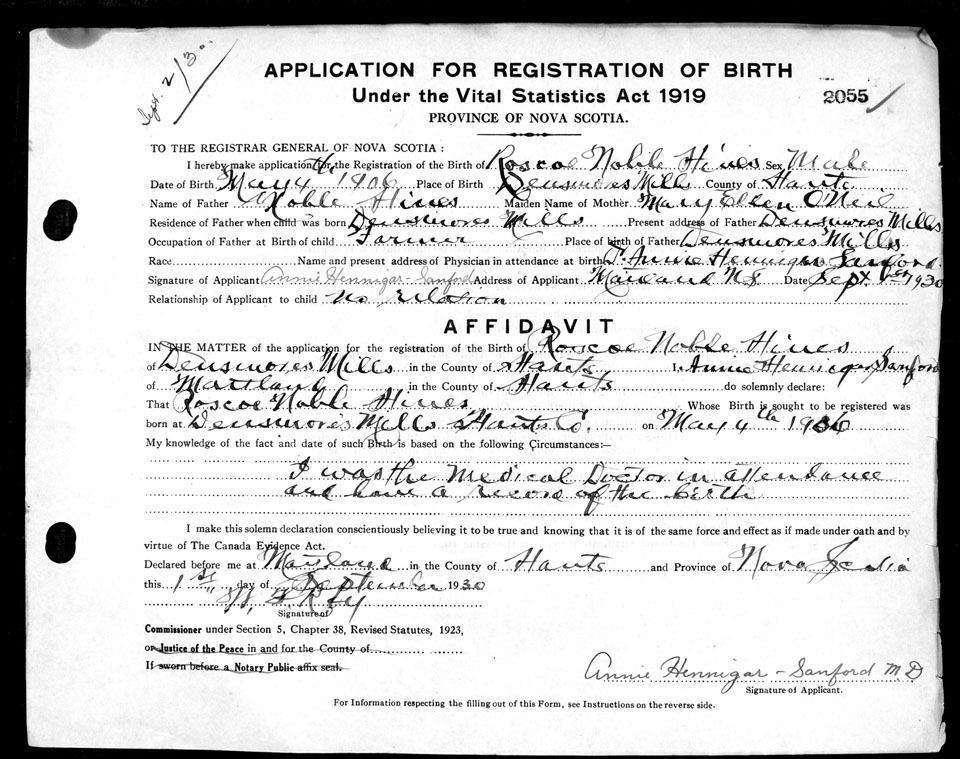 Sept. 2/30
APPLICATION FOR REGISTRATION OF BIRTH
Under the Vital Statistics Act 1919
2055
PROVINCE OF NOVA SCOTIA.
TO THE REGISTRAR GENERAL OF NOVA SCOTIA:
I hereby make application for the Registration of the Birth of Roscoe Noble Hines Sex Male
Date of Birth May 4th 1906 Place of Birth Densmores Mills County of Hants
Name of Father Noble Hines Maiden Name of Mother Mary Ellen O'Neil
Residence of Father when child was born Densmores Mills Present address of Father Densmores Mills
Occupation of Father at Birth of child Farmer Place of birth of Father Densmores Mills
Race Name and present address of Physician in attendance at birth Annie Hennigar Sanford
Signature of Applicant Annie Hennigar-Sanford Address of Applicant Maitland NS Date Sept 1st 1930
Relationship of Applicant to child no relation
AFFIDAVIT
IN THE MATTER of the application for the registration of the Birth of Roscoe Noble Hines
of Densmores Mills in the County of Hants I, Annie Hennigar Sanford
of Maitland in the County of Hants do solemnly declare:
That Roscoe Noble Hines Whose Birth is sought to be registered was
born at Densmores Mills Hants Co. on May 4th 1906
My knowledge of the fact and date of such Birth is based on the following Circumstances:—
I was the Medical Doctor in attendance
and have a record of the birth
I make this solemn declaration conscientiously believing it to be true and knowing that it is of the same force and effect as if made under oath and by
virtue of The Canada Evidence Act.
Declared before me at Maitland in the County of Hants and Province of Nova Scotia
this 1st day of September 1930
Signature of
Commissioner under Section 5, Chapter 38, Revised Statutes, 1923,
or Justice of the Peace in and for the County of
If sworn before a Notary Public affix seal.
Annie Hennigar-Sanford M.D
Signature of Applicant.
For Information respecting the filling out of this Form, see Instructions on the reverse side.